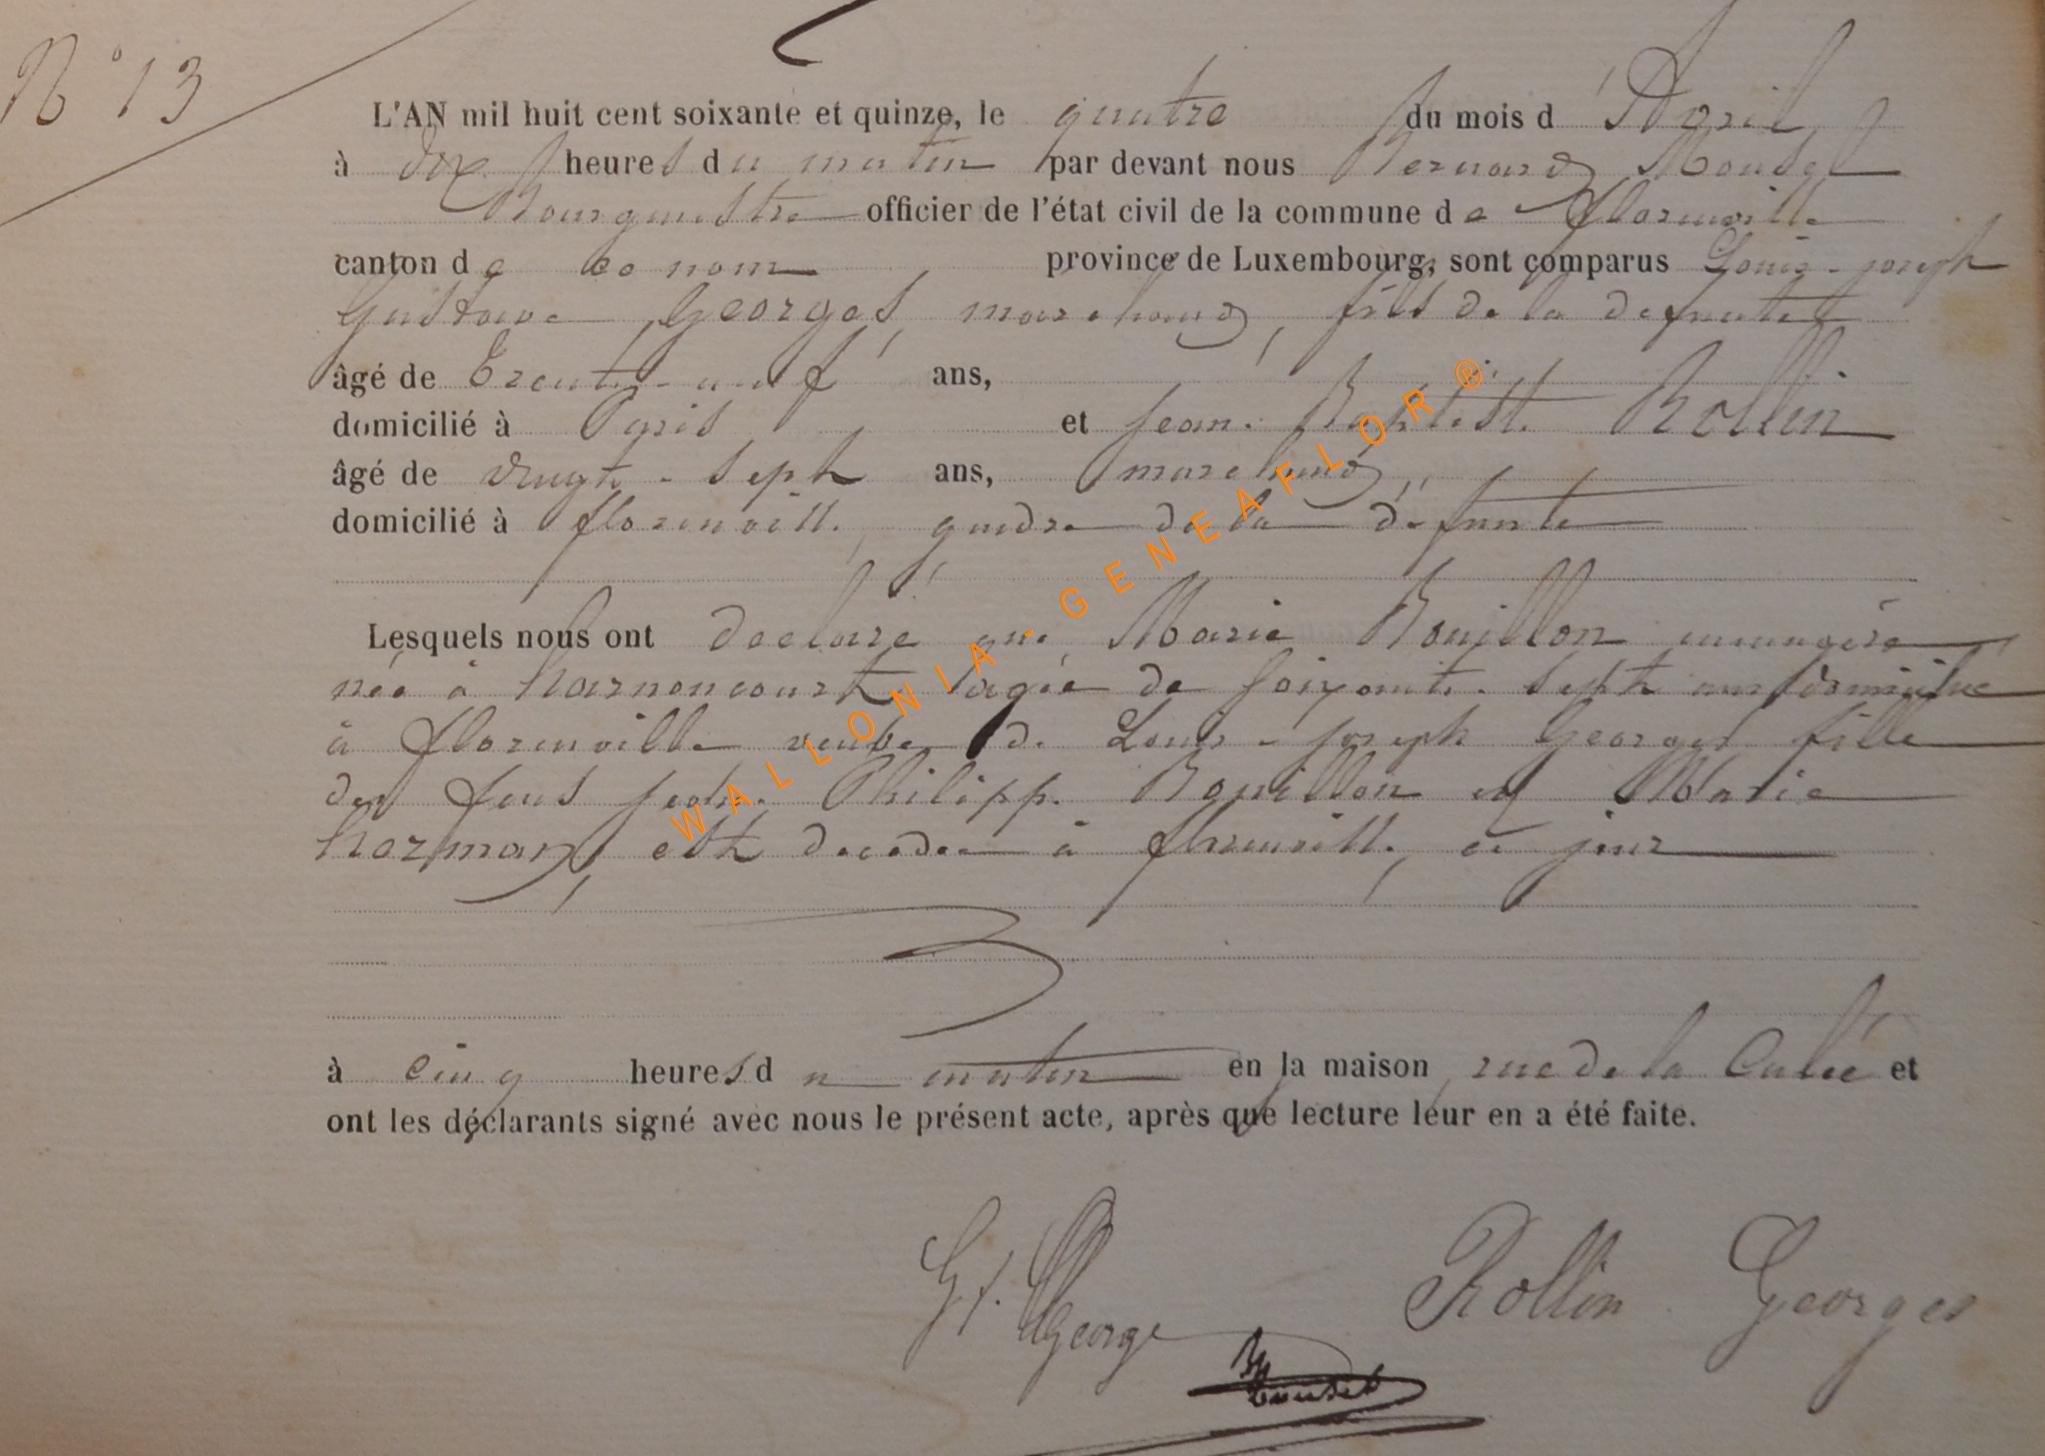 N° 13
L'AN mil huit cent soixante et quinze, le quatre du mois d'Avril
à dix heures du matin par devant nous Bernard Mousel
Bourgmestre officier de l'état civil de la commune de Florenville
canton de ce nom province de Luxembourg, sont comparus Louis-Joseph
Gustave Georges, marchand, fils de la defunte
âgé de trente-neuf ans,
domicilié à Paris et Jean Baptiste Rollin
âgé de vingt-sept ans, marchand,
domicilié à florenville, gendre de la défunte
Lesquels nous ont declaré que Marie Bouillon menagère
née à harnoncourt agée de soixante-sept ans domiciliée
à florenville veuve de Louis-Joseph Georges fille
des feus Jean Philippe Bouillon et Marie
hozman, est decedee à florenville, ce jour
à cinq heures du matin en la maison, rue de la Culée et
ont les déclarants signé avec nous le présent acte, après que lecture leur en a été faite.
George Rollin Georges
Mousel
WALLONIA-GENEAFLOR ®